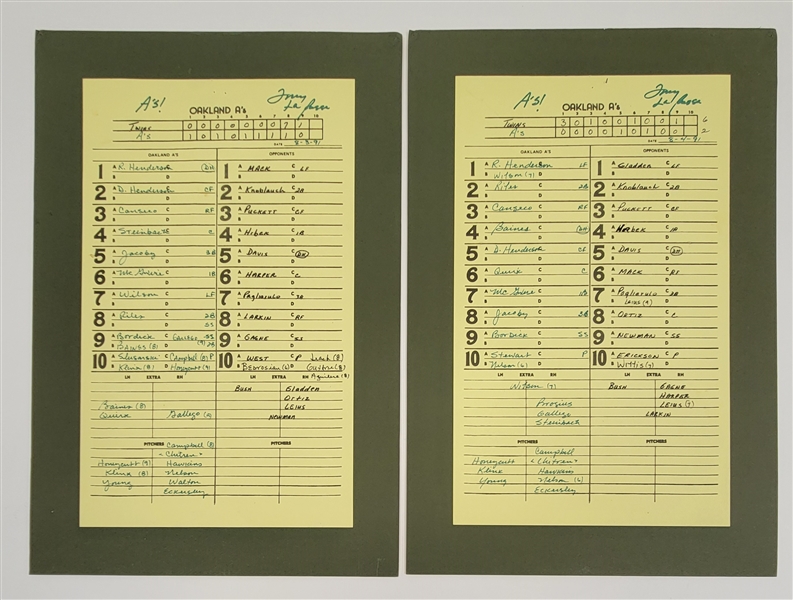 A's! Tony La Russa
OAKLAND A's
1 2 3 4 5 6 7 8 9 10
TWINS 0 0 0 0 0 0 0 7 1
A's 1 0 1 0 1 1 1 1 0
DATE 8-3-91
OAKLAND A'S OPPONENTS
1 A R. Henderson C DH 1 A MACK C LF
B D B D
2 A D. Henderson C CF 2 A Knoblauch C 2B
B D B D
3 A Canseco C RF 3 A PUCKETT C CF
B D B D
4 A Steinbach C C 4 A Hrbek C 1B
B D B D
5 A Jacoby C 3B 5 A DAVIS C DH
B D B D
6 A McGwire C 1B 6 A HARPER C C
B D B D
7 A Wilson C LF 7 A Pagliarulo C 3B
B D B D
8 A Riles C 2B 8 A LARKIN C RF
B D SS B D
9 A Bordick C Gallego SS 9 A GAGNE C SS
B BAINES (8) D (9) 2B B D
10 A Slusarski C Campbell (8) P 10 A WEST C P Leach (8)
B Klink (8) D Honeycutt (9) B BEDROSIAN D Guthrie (8)
Aguilera (8)
LH EXTRA RH LH EXTRA RH
BUSH Gladden
Ortiz
Baines (8) LEIUS
Quirk Gallego NEWMAN
PITCHERS Campbell (8) PITCHERS
<Chitren>
Honeycutt (9) Hawkins
Klink (8) Nelson
Young Walton
Eckersley
A's! Tony La Russa
OAKLAND A's
1 2 3 4 5 6 7 8 9 10
TWINS 3 0 1 0 0 1 0 0 1 6
A's 0 0 0 0 1 0 1 0 0 2
DATE 8-4-91
OAKLAND A'S OPPONENTS
1 A R. Henderson C LF 1 A Gladden C LF
B Wilson (7) D B D
2 A Riles C 2B 2 A Knoblauch C 2B
B D B D
3 A Canseco C RF 3 A PUCKETT C CF
B D B D
4 A Baines C DH 4 A Hrbek C 1B
B D B D
5 A D. Henderson C CF 5 A DAVIS C DH
B D B D
6 A Quirk C C 6 A MACK C RF
B D B D
7 A McGwire C 1B 7 A Pagliarulo C 3B
B D B LEIUS (9) D
8 A Jacoby C 3B 8 A ORTIZ C C
B D B D
9 A Bordick C SS 9 A NEWMAN C SS
B D B D
10 A Stewart C P 10 A ERICKSON C P
B Nelson (6) D B Willis (7) D
LH EXTRA RH LH EXTRA RH
Wilson (7) BUSH GAGNE
HARPER
Brosius LEIUS (9)
Gallego LARKIN
Steinbach
PITCHERS PITCHERS
Campbell
<Chitren>
Honeycutt Hawkins
Klink Nelson (6)
Young Eckersley